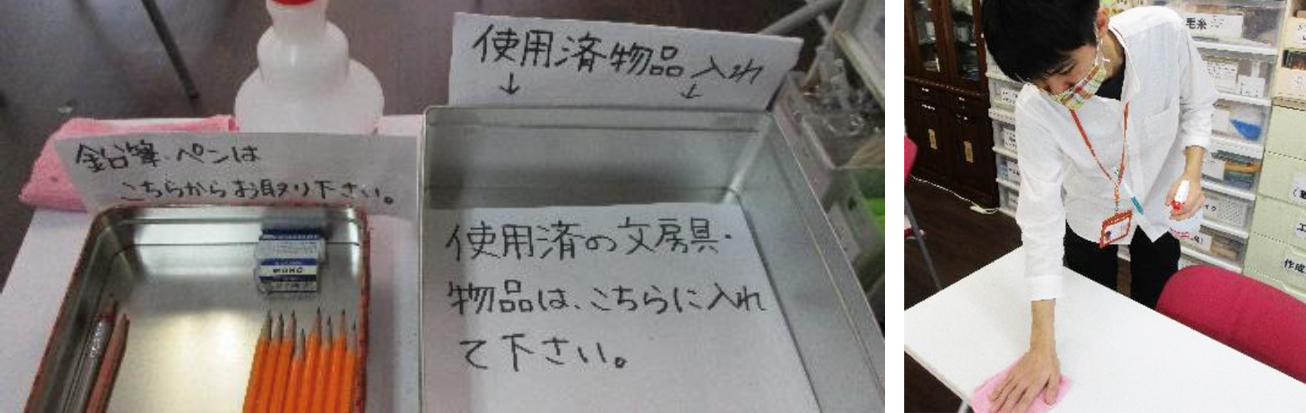 使用済物品入れ
↓ ↓
鉛筆・ペンは
こちらからお取り下さい。
使用済の文房具・
物品は、こちらに入れ
て下さい。
MONO
毛糸
作成